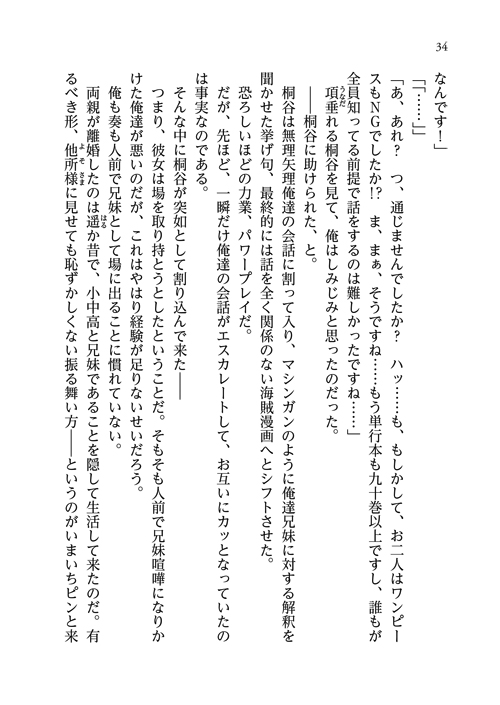 34
なんです！」
「「……」」
「あ、あれ？　つ、通じませんでしたか？　ハッ……も、もしかして、お二人はワンピー
スもNGでしたか!?　ま、まぁ、そうですね……もう単行本も九十巻以上ですし、誰もが
全員知ってる前提で話をするのは難しかったですね……」
　項垂れる桐谷を見て、俺はしみじみと思ったのだった。
　――桐谷に助けられた、と。
　桐谷は無理矢理俺達の会話に割って入り、マシンガンのように俺達兄妹に対する解釈を
聞かせた挙げ句、最終的には話を全く関係のない海賊漫画へとシフトさせた。
　恐ろしいほどの力業、パワープレイだ。
　だが、先ほど、一瞬だけ俺達の会話がエスカレートして、お互いにカッとなっていたの
は事実なのである。
　そんな中に桐谷が突如として割り込んで来た――
　つまり、彼女は場を取り持とうとしたということだ。そもそも人前で兄妹喧嘩になりか
けた俺達が悪いのだが、これはやはり経験が足りないせいだろう。
　俺も奏も人前で兄妹として場に出ることに慣れていない。
　両親が離婚したのは遥か昔で、小中高と兄妹であることを隠して生活して来たのだ。有
るべき形、他所様に見せても恥ずかしくない振る舞い方――というのがいまいちピンと来